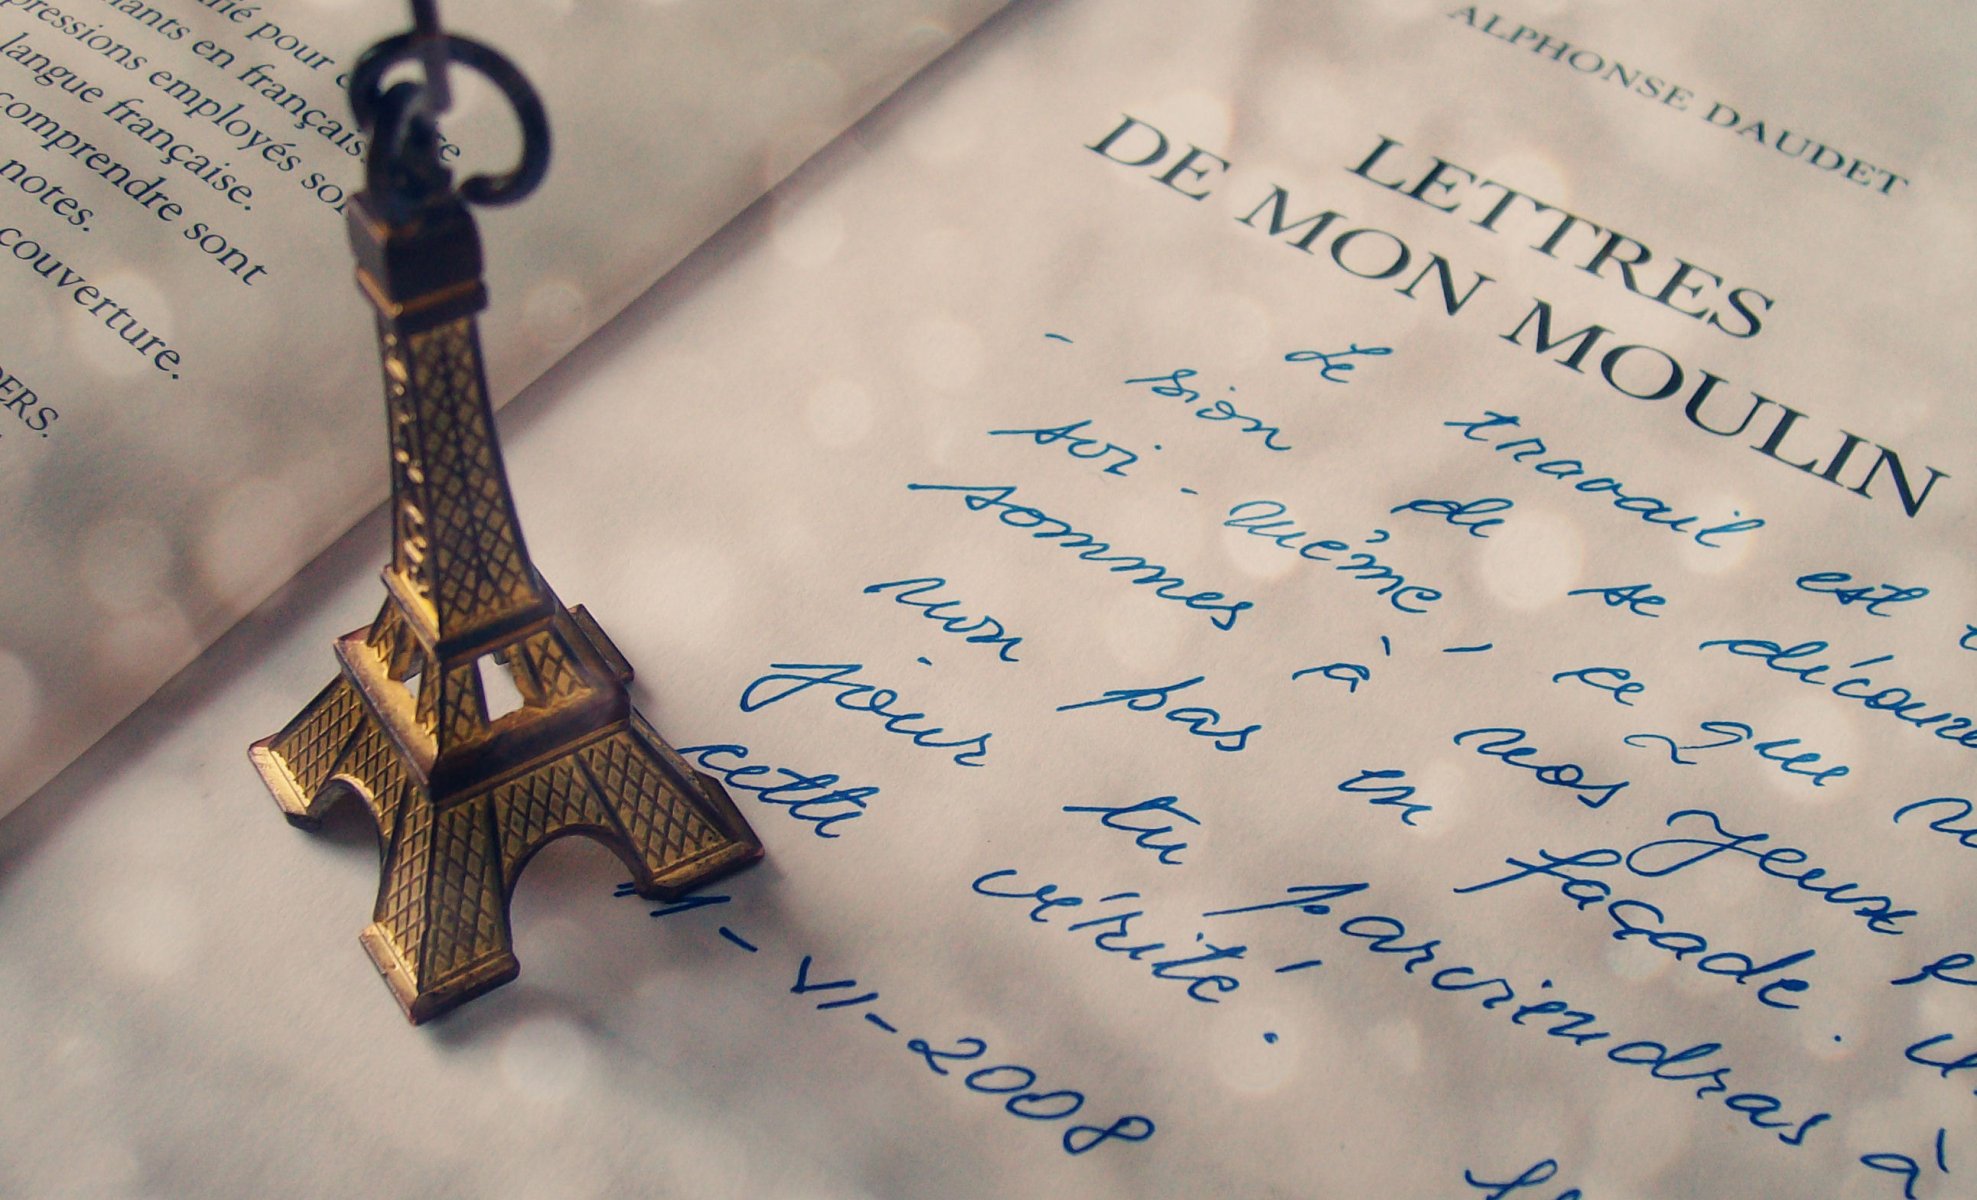 pour
en français.
employés
langue française.
comprendre sont
notes.
couverture.
ALPHONSE DAUDET
LETTRES
DE MON MOULIN
Le travail est
- sion de se
soi-même, ce que
sommes à nos yeux
non pas en façade.
jour tu parviendras à
cette vérité.
VII-2008